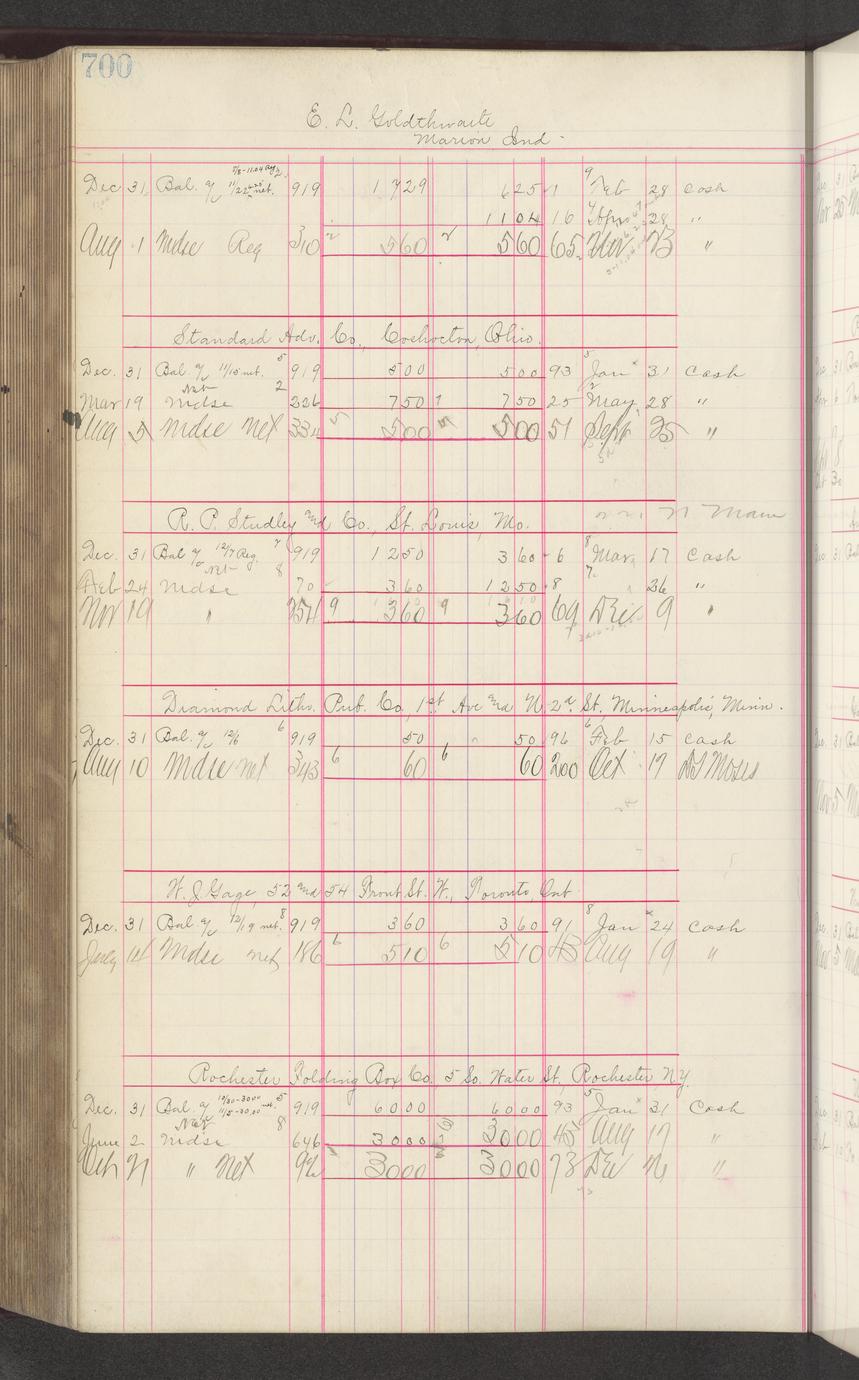 700
E. L. Goldthwaite
Marion Ind.
Dec 31 Bal. a/c 919 1729 625 1 9 Feb 28 Cash
1104 16 28 "
Aug 1 Mdse Reg 310 2 560 2 560 65 23 "
Standard Adv. Co., Coshocton, Ohio.
Dec. 31 Bal a/c 11/15 net. 5 919 500 500 93 5 Jan 31 Cash
Mar 19 Mdse Net 2 226 750 750 25 2 May 28 "
Aug 5 Mdse Net 334 5 500 5 500 51 Sept 25 "
R. P. Studley and Co., St. Louis, Mo.
Dec. 31 Bal a/c 12/7 Reg. 7 919 1250 360 6 8 Mar. 17 Cash
Feb 24 Mdse Net 8 70 360 1250 8 7 26 "
Nov 19 " 254 9 360 9 360 69 Dec 9 "
Diamond Litho. Pub. Co, 1st Ave and N. 2d St, Minneapolis, Minn.
Dec. 31 Bal. a/c 12/6 6 919 50 50 96 6 Feb 15 Cash
Aug 10 Mdse net 343 6 60 6 60 200 Oct 17 Moses
W. J Gage, 52 and 54 Front St. W., Toronto, Ont
Dec. 31 Bal a/c 12/19 net. 8 919 360 360 91 8 Jan 24 Cash
Mdse net 186 6 510 6 510 43 Aug 19 "
Rochester Folding Box Co. 5 So. Water St, Rochester N.Y.
Dec. 31 Bal a/c 10/30-3000 11/5-3000 net 5 919 6000 6000 93 5 Jan 31 Cash
June 2 Mdse Net 8 646 3000 3000 45 Aug 17 "
Oct 21 " Net 92 3000 3000 73 Dec "